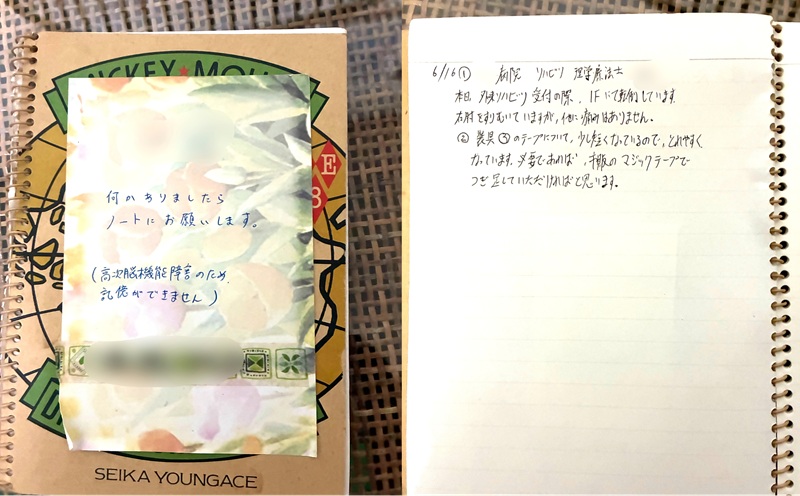 MICKEY★MOU
E
3
何かありましたら
ノートにお願いします。
(高次脳機能障害のため、
記憶ができません)
D
SEIKA YOUNGACE
6/16① 病院 リハビリ 理学療法士
本日、外来リハビリ受付の際、1Fにて転倒しています。
右肘をすりむいていますが、他に痛みはありません。
② 装具のテープについて、少し短くなっているので、とれやすく
なっています。必要であれば、市販のマジックテープで
つぎ足していただければと思います。